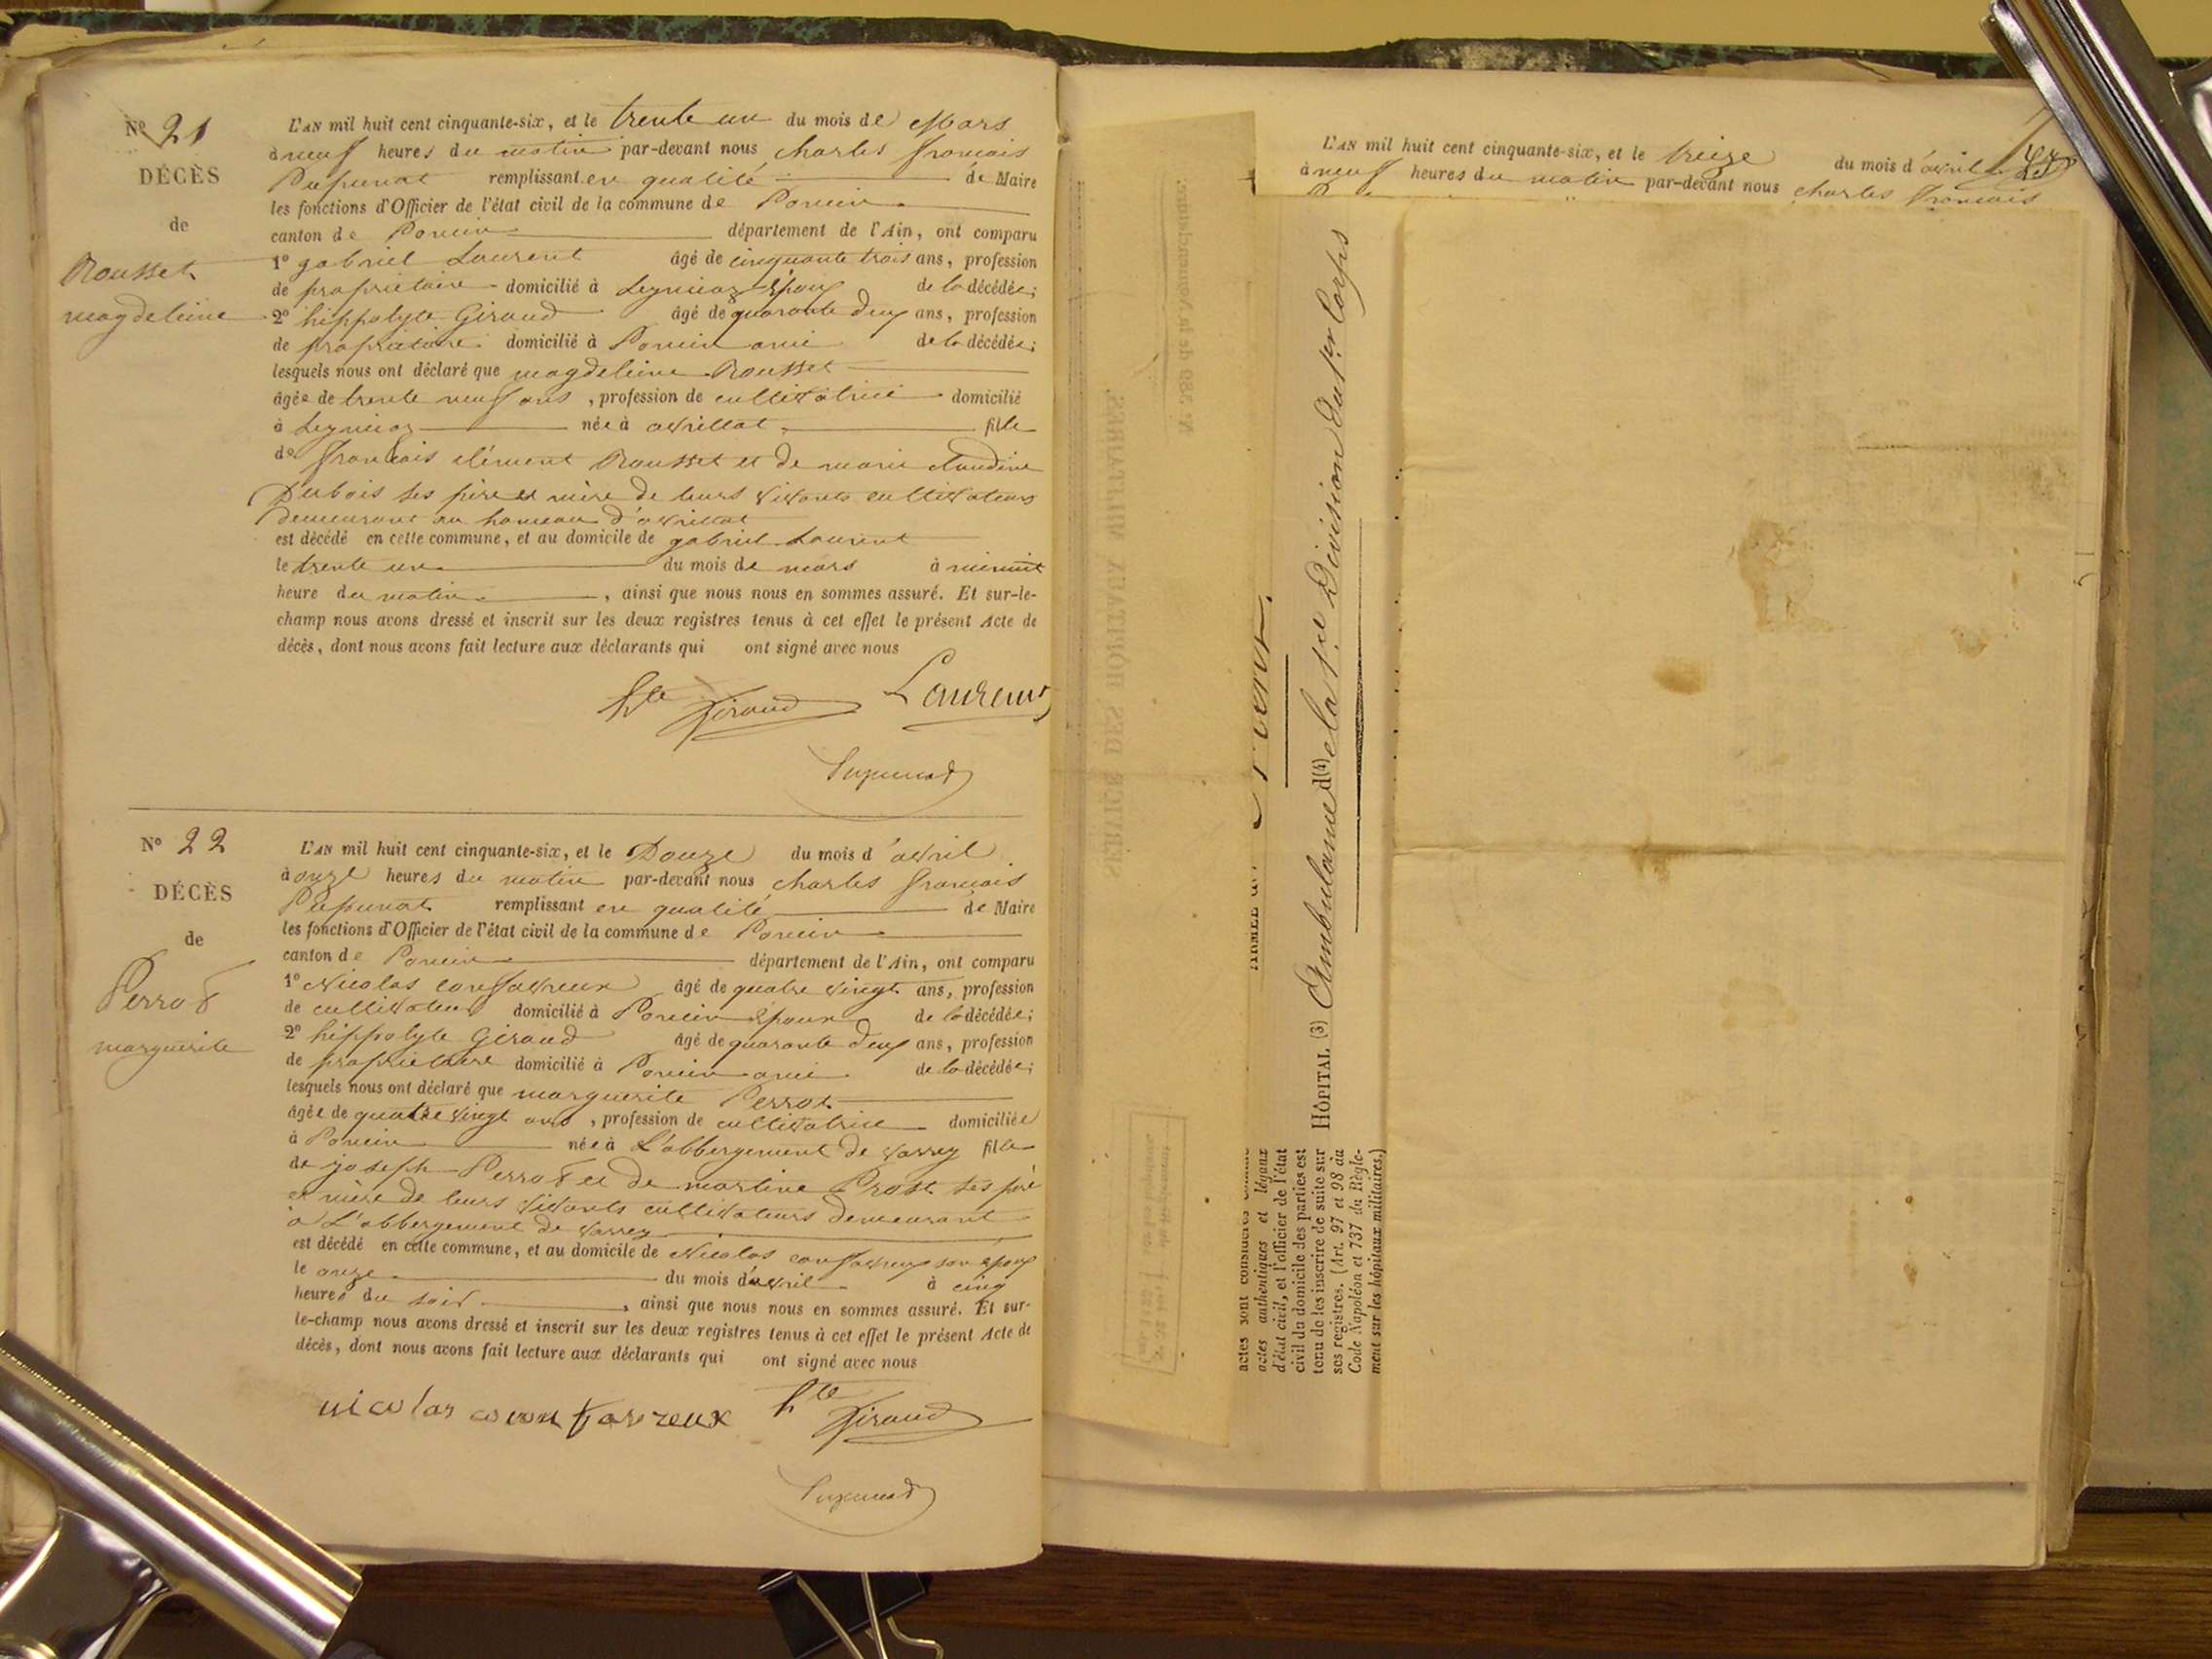 Nº 21
DÉCÈS
de
Rousset
magdeleine
L'AN mil huit cent cinquante-six, et le trente un du mois de Mars
à neuf heures du matin par-devant nous charles françois
Pupunat remplissant en qualité de Maire
les fonctions d'Officier de l'état civil de la commune de Poncin
canton de Poncin département de l'Ain, ont comparu
1º gabriel Laurent âgé de cinquante trois ans, profession
de propriétaire domicilié à Leymiaz époux de la décédée;
2º hippolyte Giraud âgé de quarante deux ans, profession
de propriétaire domicilié à Poncin ami de la décédée;
lesquels nous ont déclaré que magdeleine Rousset
âgée de trente neuf ans, profession de cultivatrice domicilié
à Leymiaz née à avrillat fille
de françois clément Rousset et de marie claudine
Dubois ses père et mère de leurs vivants cultivateurs
demeurant au hameau d'avrillat
est décédé en cette commune, et au domicile de gabriel Laurent
le trente un du mois de mars à minuit
heure du matin, ainsi que nous nous en sommes assuré. Et sur-le-
champ nous avons dressé et inscrit sur les deux registres tenus à cet effet le présent Acte de
décès, dont nous avons fait lecture aux déclarants qui ont signé avec nous
hte Giraud Laurent
Pupunat
Nº 22
DÉCÈS
de
Perrot
marguerite
L'AN mil huit cent cinquante-six, et le Douze du mois d'avril
à onze heures du matin par-devant nous charles françois
Pupunat remplissant en qualité de Maire
les fonctions d'Officier de l'état civil de la commune de Poncin
canton de Poncin département de l'Ain, ont comparu
1º Nicolas confavreux âgé de quatre vingt ans, profession
de cultivateur domicilié à Poncin époux de la décédée;
2º hippolyte Giraud âgé de quarante deux ans, profession
de propriétaire domicilié à Poncin ami de la décédée;
lesquels nous ont déclaré que marguerite Perrot
âgée de quatre vingt ans, profession de cultivatrice domiciliée
à Poncin née à L'abbergement de varey fille
de joseph Perrot et de martine Prost ses père
et mère de leurs vivants cultivateurs demeurant
à L'abbergement de varey
est décédé en cette commune, et au domicile de Nicolas confavreux son époux
le onze du mois d'avril à cinq
heures du soir, ainsi que nous nous en sommes assuré. Et sur-
le-champ nous avons dressé et inscrit sur les deux registres tenus à cet effet le présent Acte de
décès, dont nous avons fait lecture aux déclarants qui ont signé avec nous
nicolas confavreux hte Giraud
Pupunat
L'AN mil huit cent cinquante-six, et le treize du mois d'avril
à neuf heures du matin par-devant nous charles françois
SERVICE DES HÔPITAUX MILITAIRES.
Nº 389 de la Nomenclature.
HÔPITAL (3) Ambulance d(4)e la 1re Division du 1er Corps
actes sont considérés comme
actes authentiques et légaux
d'état civil, et l'officier de l'état
civil du domicile des parties est
tenu de les inscrire de suite sur
ses registres. (Art. 97 et 98 du
Code Napoléon et 737 du Règle-
ment sur les hôpitaux militaires.)